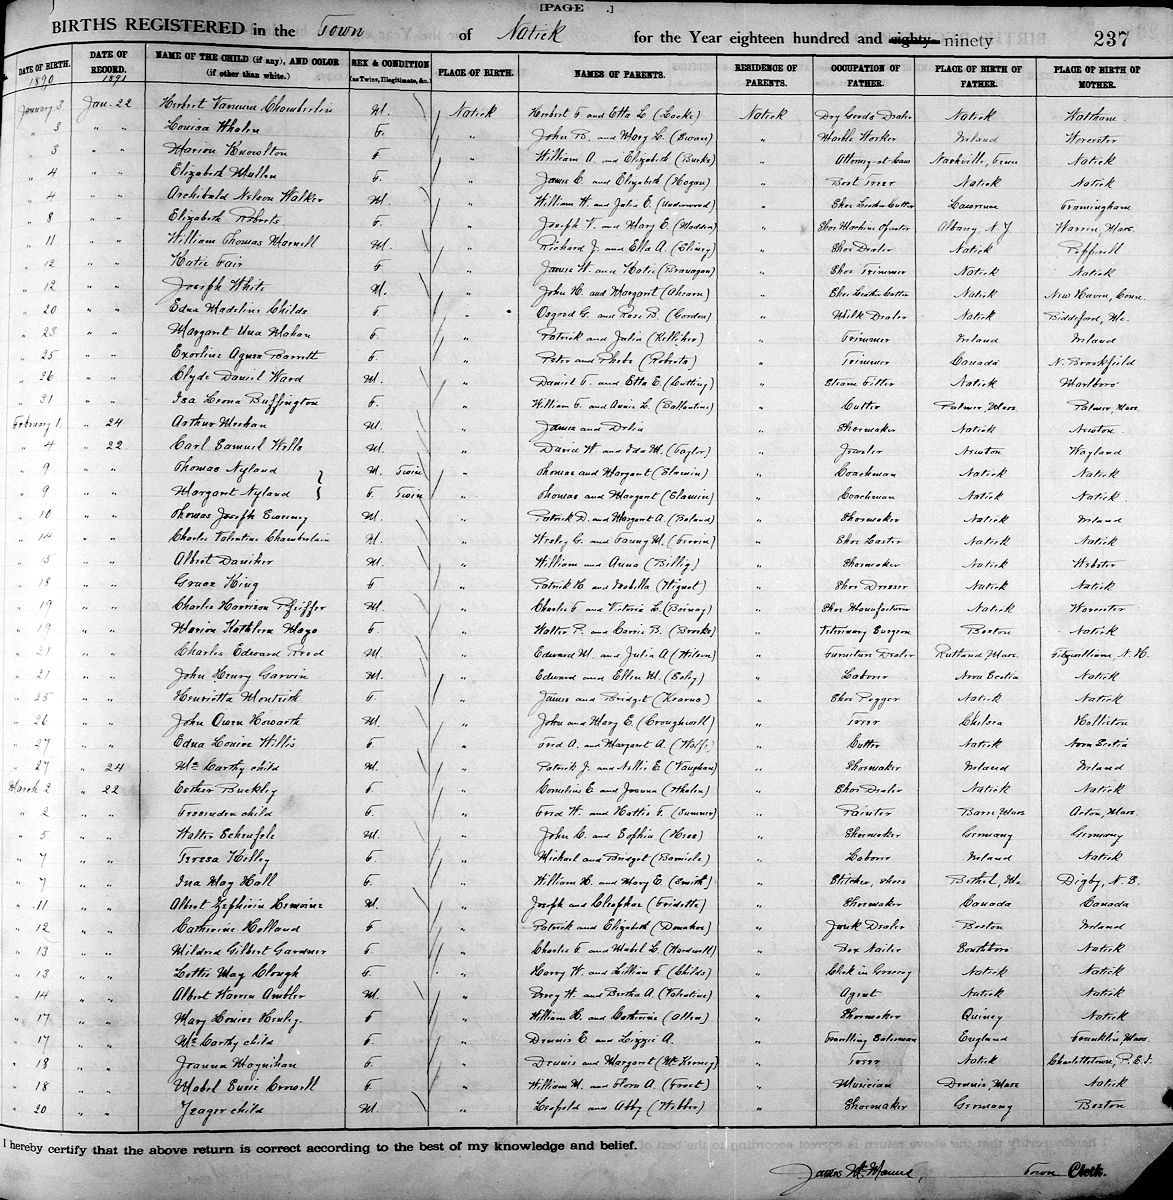 [PAGE .]
BIRTHS REGISTERED in the Town of Natick for the Year eighteen hundred and eighty ninety 237
DATE OF BIRTH. 1890 DATE OF RECORD. 1891 NAME OF THE CHILD (if any), AND COLOR (if other than white.) SEX & CONDITION (as Twins, Illegitimate, &c.) PLACE OF BIRTH. NAMES OF PARENTS. RESIDENCE OF PARENTS. OCCUPATION OF FATHER. PLACE OF BIRTH OF FATHER. PLACE OF BIRTH OF MOTHER.
January 3 Jan. 22 Herbert Vannevar Chamberlin M. Natick Herbert F. and Etta L (Locke) Natick Dry Goods Dealer Natick Waltham
" 3 " " Louisa Whalen F. " John B. and Mary L. (Swan) " Marble Worker Ireland Worcester
" 3 " " Marion Knowlton F. " William A. and Elizabeth (Burks) " Attorney-at-Law Nashville, Tenn Natick
" 4 " " Elizabeth Mullen F. " James C. and Elizabeth (Hogan) " Boot Treer Natick Natick
" 4 " " Archibald Nelson Walker M. " William W. and Julia E. (Underwood) " Shoe Leather Cutter Lawrence Framingham
" 8 " " Elizabeth Roberts F. " Joseph V. and Mary E. (Madden) " Shoe Machine Operator Albany N.Y. Warren, Mass.
" 11 " " William Thomas M. " Richard J. and Ella A. " Shoe Dealer Natick Pepperell
" 12 " " Katie Fair F " James W. and Katie (Branagan) " Shoe Trimmer Natick Natick
" 12 " " Joseph White M. " John H. and Margaret (Ahearn) " Shoe Leather Cutter Natick New Haven, Conn.
" 20 " " Edna Madeline Childs F " Osgood G. and Rose B. (Gordon) " Milk Dealer Natick Biddeford, Me.
" 23 " " Margaret Una Mahan F. " Patrick and Julia (Kelliher) " Trimmer Ireland Ireland
" 25 " " Agnes Barrett F. " Peter and Phebe (Roberts) " Trimmer Canada N. Brookfield
" 26 " " Clyde Daniel Ward M. " Daniel F. and Etta E. (Cutting) " Steam Fitter Natick Marlboro
" 31 " " Isa Leona Buffington F. " William F. and Annie L. (Ballantine) " Cutter Palmer, Mass. Palmer, Mass
February 1 " 24 Arthur Meehan M. " James and Delia " Shoemaker Natick Newton
" 4 " 22 Carl Samuel Wells M. " David W and Ida M. (Taylor) " Jeweler Newton Wayland
" 9 " " Thomas Nyland M. Twin " Thomas and Margaret (Slamin) " Coachman Natick Natick
" 9 " " Margaret Nyland F. Twin " Thomas and Margaret (Slamin) " Coachman Natick Natick
" 10 " " Thomas Joseph Sweeney M. " Patrick D. and Margaret A. (Boland) " Shoemaker Natick Ireland
" 14 " " Charles Valentine Chamberlain M. " Wesley G. and Fanny M. " Shoe Laster Natick Natick
" 15 " " Albert Daniker M. " William and Anna (Billig) " Shoemaker Natick Webster
" 18 " " Grace King F " Patrick H. and Isabella " Shoe Dresser Natick Natick
" 19 " " Charles Harrison Pfeiffer M. " Charles F and Victoria L. " Shoe Manufacturer Natick Worcester
" 19 " " Marion Kathleen Mayo F. " Walter P. and Carrie B. (Brooks) " Veterinary Surgeon Boston Natick
" 21 " " Charles Edward Reed M. " Edward M. and Julia A (Wilson) " Furniture Dealer Rutland, Mass. Fitzwilliam, N.H.
" 21 " " John Henry Garvin M. " Edward and Ellen M. " Laborer Nova Scotia Natick
" 25 " " Henrietta F. " James and Bridget (Kearns) " Shoe Pegger Natick Natick
" 26 " " John Owen Howarth M. " John and Mary E (Croughwell) " Treer Chelsea Holliston
" 27 " " Edna Louise Willis F. " Fred A. and Margaret A. " Cutter Natick Nova Scotia
" 27 " 24 McCarthy child M. " Patrick J. and Nellie E (Vaughan) " Shoemaker Ireland Ireland
March 2 " 22 Esther Buckley F. " Cornelius E and Joanna (Whalen) " Shoe Dealer Natick Natick
" 2 " " Fessenden child F. " Fred W. and Hattie F. (Sumner) " Painter Barre, Mass Acton, Mass.
" 5 " " Walter Scheufele M. " John C. and Sophia (Hess) " Shoemaker Germany Germany
" 7 " " Teresa Kelley F. " Michael and Bridget (Barnicle) " Laborer Ireland Natick
" 7 " " Ina May Hall F. " William H. and Mary E (Smith) " Stitcher, shoes Bethel, Me Digby, N.S.
" 11 " " Albert Zephirin Lemoine M. " Joseph and Cleophee (Fridette) " Shoemaker Canada Canada
" 12 " " Catherine Holland F. " Patrick and Elizabeth (Donahoe) " Junk Dealer Boston Ireland
" 13 " " Mildred Gilbert Gardner F " Charles F. and Mabel L. (Hardwell) " Box Nailer Southboro Natick
" 13 " " Lottie May Clough F. " Harry W. and Lillian F (Childs) " Clerk in Grocery Natick Natick
" 14 " " Albert Warren Ambler M. " Percy H. and Bertha A. (Valentine) " Agent Natick Natick
" 17 " " Mary Louise Henley F " William H. and Catherine (Allen) " Shoemaker Quincy Natick
" 17 " " McCarthy child F. " Dennis E. and Lizzie A. " Travelling Salesman England Franklin, Mass.
" 18 " " Joanna Moynihan F. " Dennis and Margaret (McKenney) " Treer Natick Charlottetown, P.E.I.
" 18 " " Mabel Susie Crowell F " William M. and Flora A. (Frost) " Musician Dennis, Mass Natick
" 20 " " Yeager child M. " Leopold and Abby (Webber) " Shoemaker Germany Boston
I hereby certify that the above return is correct according to the best of my knowledge and belief.
James Town Clerk.